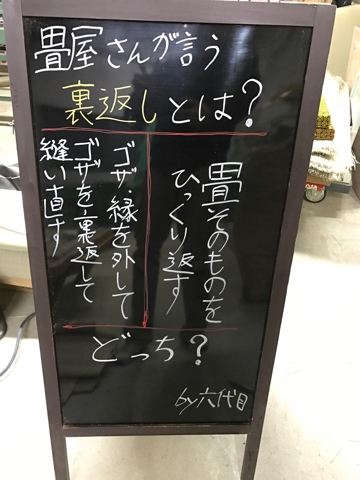 畳屋さんが言う
裏返しとは？
畳そのものを
ひっくり返す
ゴザ・縁を外して
ゴザを裏返して
縫い直す
どっち？
by六代目